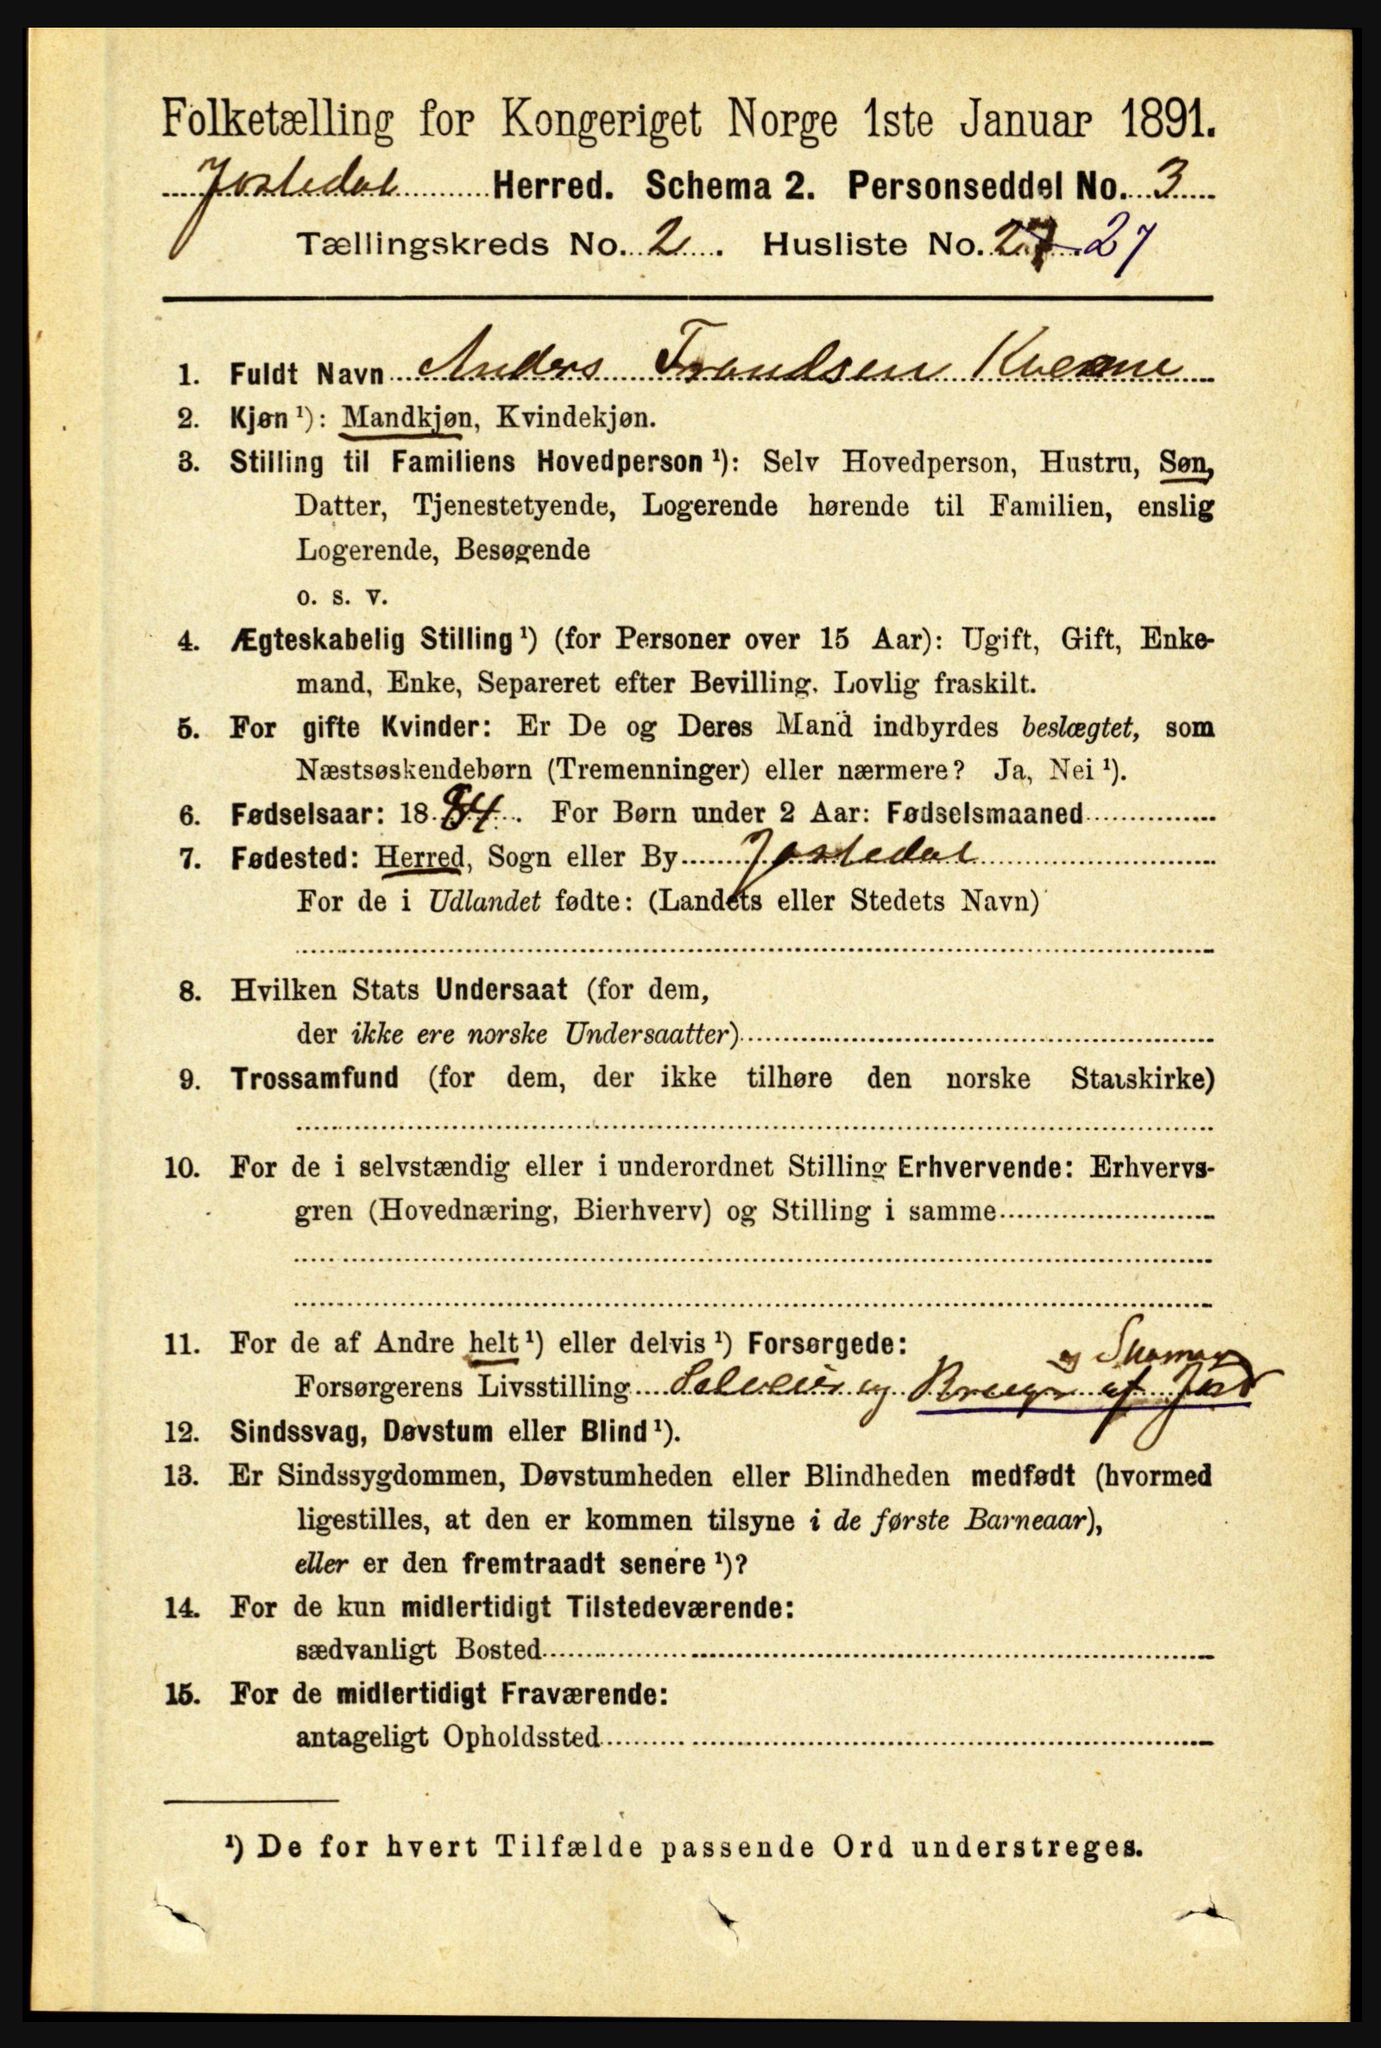 Folketælling for Kongeriget Norge 1ste Januar 1891.
Jostedal Herred. Schema 2. Personseddel No. 3
Tællingskreds No. 2. Husliste No. 27. 27
1. Fuldt Navn Anders Trondsen Kverne
2. Kjøn ¹): Mandkjøn, Kvindekjøn.
3. Stilling til Familiens Hovedperson ¹): Selv Hovedperson, Hustru, Søn,
Datter, Tjenestetyende, Logerende hørende til Familien, enslig
Logerende, Besøgende
o. s. v.
4. Ægteskabelig Stilling ¹) (for Personer over 15 Aar): Ugift, Gift, Enke-
mand, Enke, Separeret efter Bevilling. Lovlig fraskilt.
5. For gifte Kvinder: Er De og Deres Mand indbyrdes beslægtet, som
Næstsøskendebørn (Tremenninger) eller nærmere? Ja, Nei ¹).
6. Fødselsaar: 1884. For Børn under 2 Aar: Fødselsmaaned
7. Fødested: Herred, Sogn eller By Jostedal
For de i Udlandet fødte: (Landets eller Stedets Navn)
8. Hvilken Stats Undersaat (for dem,
der ikke ere norske Undersaatter)
9. Trossamfund (for dem, der ikke tilhøre den norske Statskirke)
10. For de i selvstændig eller i underordnet Stilling Erhvervende: Erhvervs-
gren (Hovednæring, Bierhverv) og Stilling i samme
11. For de af Andre helt ¹) eller delvis ¹) Forsørgede:
og Skomar
Forsørgerens Livsstilling Selveier og Bruger af Jord
12. Sindssvag, Døvstum eller Blind ¹).
13. Er Sindssygdommen, Døvstumheden eller Blindheden medfødt (hvormed
ligestilles, at den er kommen tilsyne i de første Barneaar),
eller er den fremtraadt senere ¹)?
14. For de kun midlertidigt Tilstedeværende:
sædvanligt Bosted
15. For de midlertidigt Fraværende:
antageligt Opholdssted
¹) De for hvert Tilfælde passende Ord understreges.